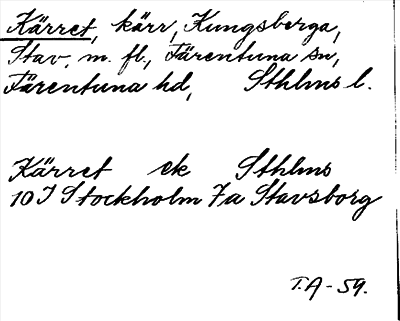 Kärret, kärr, Kungsberga,
Stav. m. fl., Färentuna sn,
Färentuna hd, Sthlms l.
Kärret ek Sthlms
10 I Stockholm 7a Stavsborg
T.A-59.